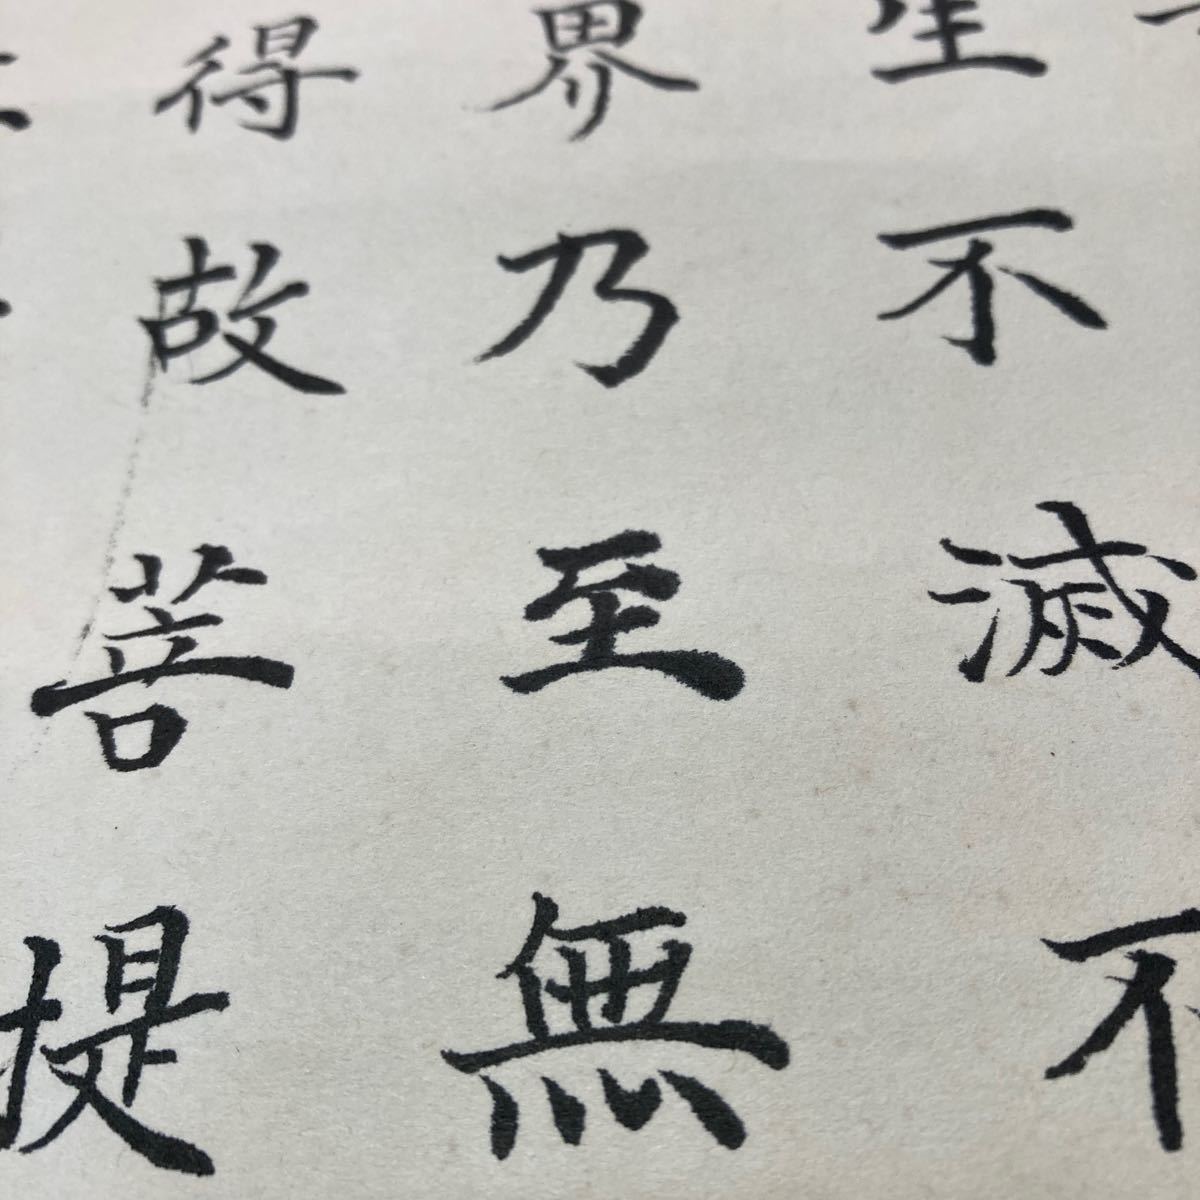 生不滅不
界乃至無
得故菩提